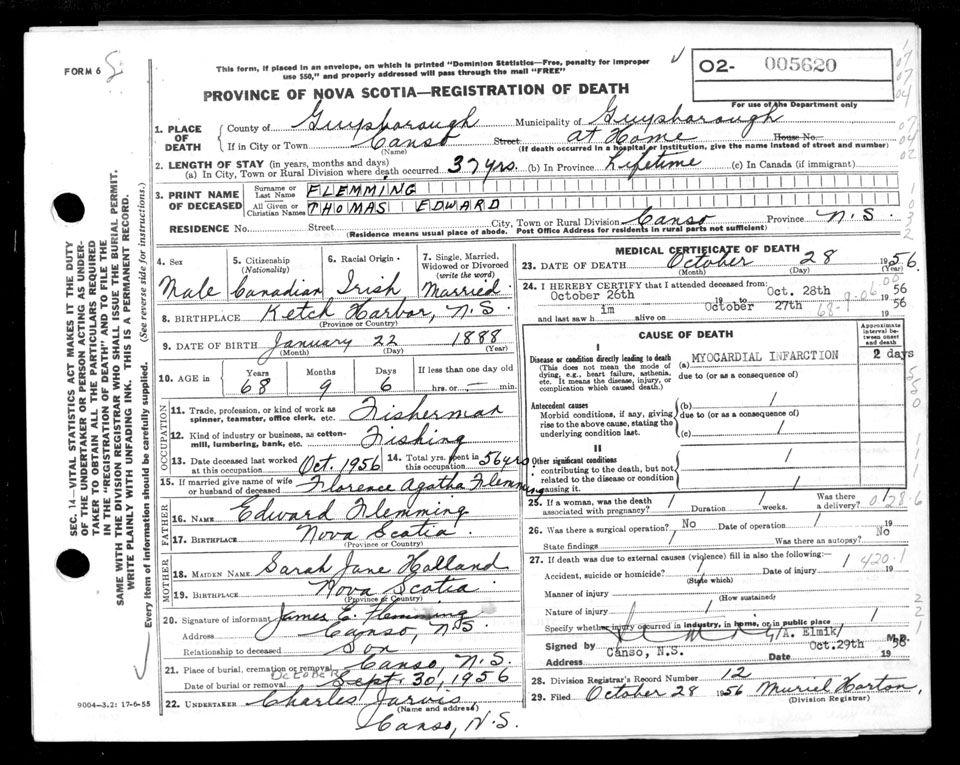 FORM 6
This form, if placed in an envelope, on which is printed "Dominion Statistics—Free, penalty for improper
use $50," and properly addressed will pass through the mail "FREE"
O2- 005620
PROVINCE OF NOVA SCOTIA—REGISTRATION OF DEATH
For use of the Department only
1. PLACE OF DEATH
County of Guysborough Municipality of Guysborough
If in City or Town Canso Street At Home House No.
(Name) (If death occurred in a hospital or institution, give the name instead of street and number)
2. LENGTH OF STAY (in years, months and days)
(a) In City, Town or Rural Division where death occurred 37 yrs. (b) In Province Lifetime (c) In Canada (if immigrant)
3. PRINT NAME OF DECEASED
Surname or Last Name FLEMMING
All Given or Christian Names THOMAS EDWARD
RESIDENCE No. Street City, Town or Rural Division Canso Province N.S.
(Residence means usual place of abode. Post Office Address for residents in rural parts not sufficient)
4. Sex Male
5. Citizenship (Nationality) Canadian
6. Racial Origin Irish
7. Single, Married, Widowed or Divorced (write the word) Married
8. BIRTHPLACE Ketch Harbor, N.S.
(Province or Country)
9. DATE OF BIRTH January 22 1888
(Month) (Day) (Year)
10. AGE in Years 68 Months 9 Days 6 If less than one day old hrs. or min.
OCCUPATION
11. Trade, profession, or kind of work as spinner, teamster, office clerk, etc. Fisherman
12. Kind of industry or business, as cotton-mill, lumbering, bank, etc. Fishing
13. Date deceased last worked at this occupation Oct. 1956
14. Total yrs. spent in this occupation 56 yrs
15. If married give name of wife or husband of deceased Florence Agatha Flemming
FATHER
16. NAME Edward Flemming
17. BIRTHPLACE Nova Scotia
(Province or Country)
MOTHER
18. MAIDEN NAME Sarah Jane Holland
19. BIRTHPLACE Nova Scotia
(Province or Country)
20. Signature of informant James E. Flemming
Address Canso, N.S.
Relationship to deceased Son
21. Place of burial, cremation or removal Canso, N.S.
OCTOBER
Date of burial or removal Sept. 30, 1956
22. UNDERTAKER Charles Jarvis
(Name and address)
Canso, N.S.
9004—3.2: 17-6-55
MEDICAL CERTIFICATE OF DEATH
23. DATE OF DEATH October 28 1956.
(Month) (Day) (Year)
24. I HEREBY CERTIFY that I attended deceased from Oct. 28th 56
October 26th 19 to October 27th 56
and last saw h im alive on 19
CAUSE OF DEATH
Approximate interval between onset and death
I
Disease or condition directly leading to death
(This does not mean the mode of dying, e.g., heart failure, asthenia, etc. It means the disease, injury, or complication which caused death.)
(a) MYOCARDIAL INFARCTION 2 days
due to (or as a consequence of)
Antecedent causes
Morbid conditions, if any, giving rise to the above cause, stating the underlying condition last.
(b) /
due to (or as a consequence of)
(c) /
II
Other significant conditions
contributing to the death, but not related to the disease or condition causing it.
25. If a woman, was the death associated with pregnancy? / Duration / weeks. Was there a delivery? /
26. Was there a surgical operation? No Date of operation / 19
State findings / Was there an autopsy? No
27. If death was due to external causes (violence) fill in also the following:—
Accident, suicide or homicide? / Date of injury / 19
(State which)
420.1
Manner of injury
(How sustained)
Nature of injury /
Specify whether injury occurred in industry, in home, or in public place /
/A. Elmik/
Signed by M.D.
Address Canso, N.S. Date Oct.29th 1956
28. Division Registrar's Record Number 12
29. Filed October 28 1956 Muriel Horton,
(Division Registrar)
SEC. 14—VITAL STATISTICS ACT MAKES IT THE DUTY
OF THE UNDERTAKER OR PERSON ACTING AS UNDER-
TAKER TO OBTAIN ALL THE PARTICULARS REQUIRED
IN THE "REGISTRATION OF DEATH" AND TO FILE THE
SAME WITH THE DIVISION REGISTRAR WHO SHALL ISSUE THE BURIAL PERMIT.
WRITE PLAINLY WITH UNFADING INK. THIS IS A PERMANENT RECORD.
Every item of information should be carefully supplied. (See reverse side for instructions.)